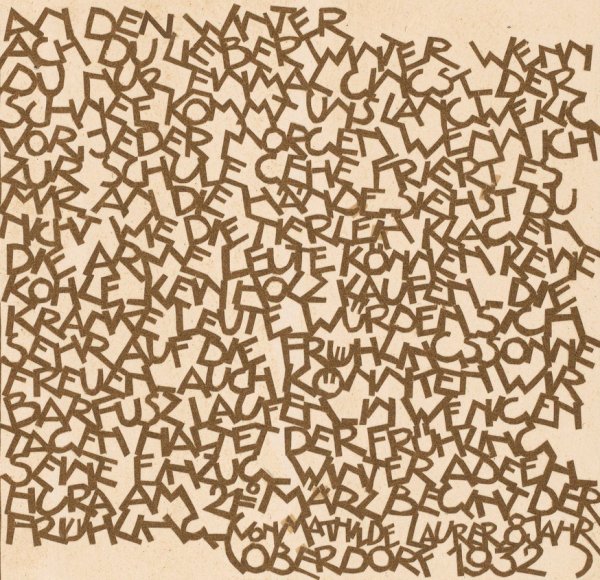 ACH DEN WINTER
ACH DU LIEBER WINTER WENN
DU NUR EINMAL GINGST DER
SCHNEE KOMMT UNS LANGWEILIG
VOR JEDER MORGEN WENN ICH
ZUR SCHULE GEHE FRIERT ES
MIR AN DIE HÄNDE SIEHST DU
NICHT WIE DIE TIERLEIN KLAGEN
DIE ARME LEUTE KÖNNEN KEINE
KOHLE KEIN HOLZ KAUFEN DIE
KRANKE LEUTE WÜRDEN SICH
SEHR AUF DIE FRÜHLINGSSONNE
FREUEN AUCH KÖNNTEN WIR
BARFUSZ LAUFEN IN WENIGEN
TAGEN HALTET DER FRÜHLING
SEINE EINZUG WINTER ADEEH
HURA AM MÄRZ DER
FRÜHLING VON MATHILDE LAURER 8 JAHR
OBERDORF 1932